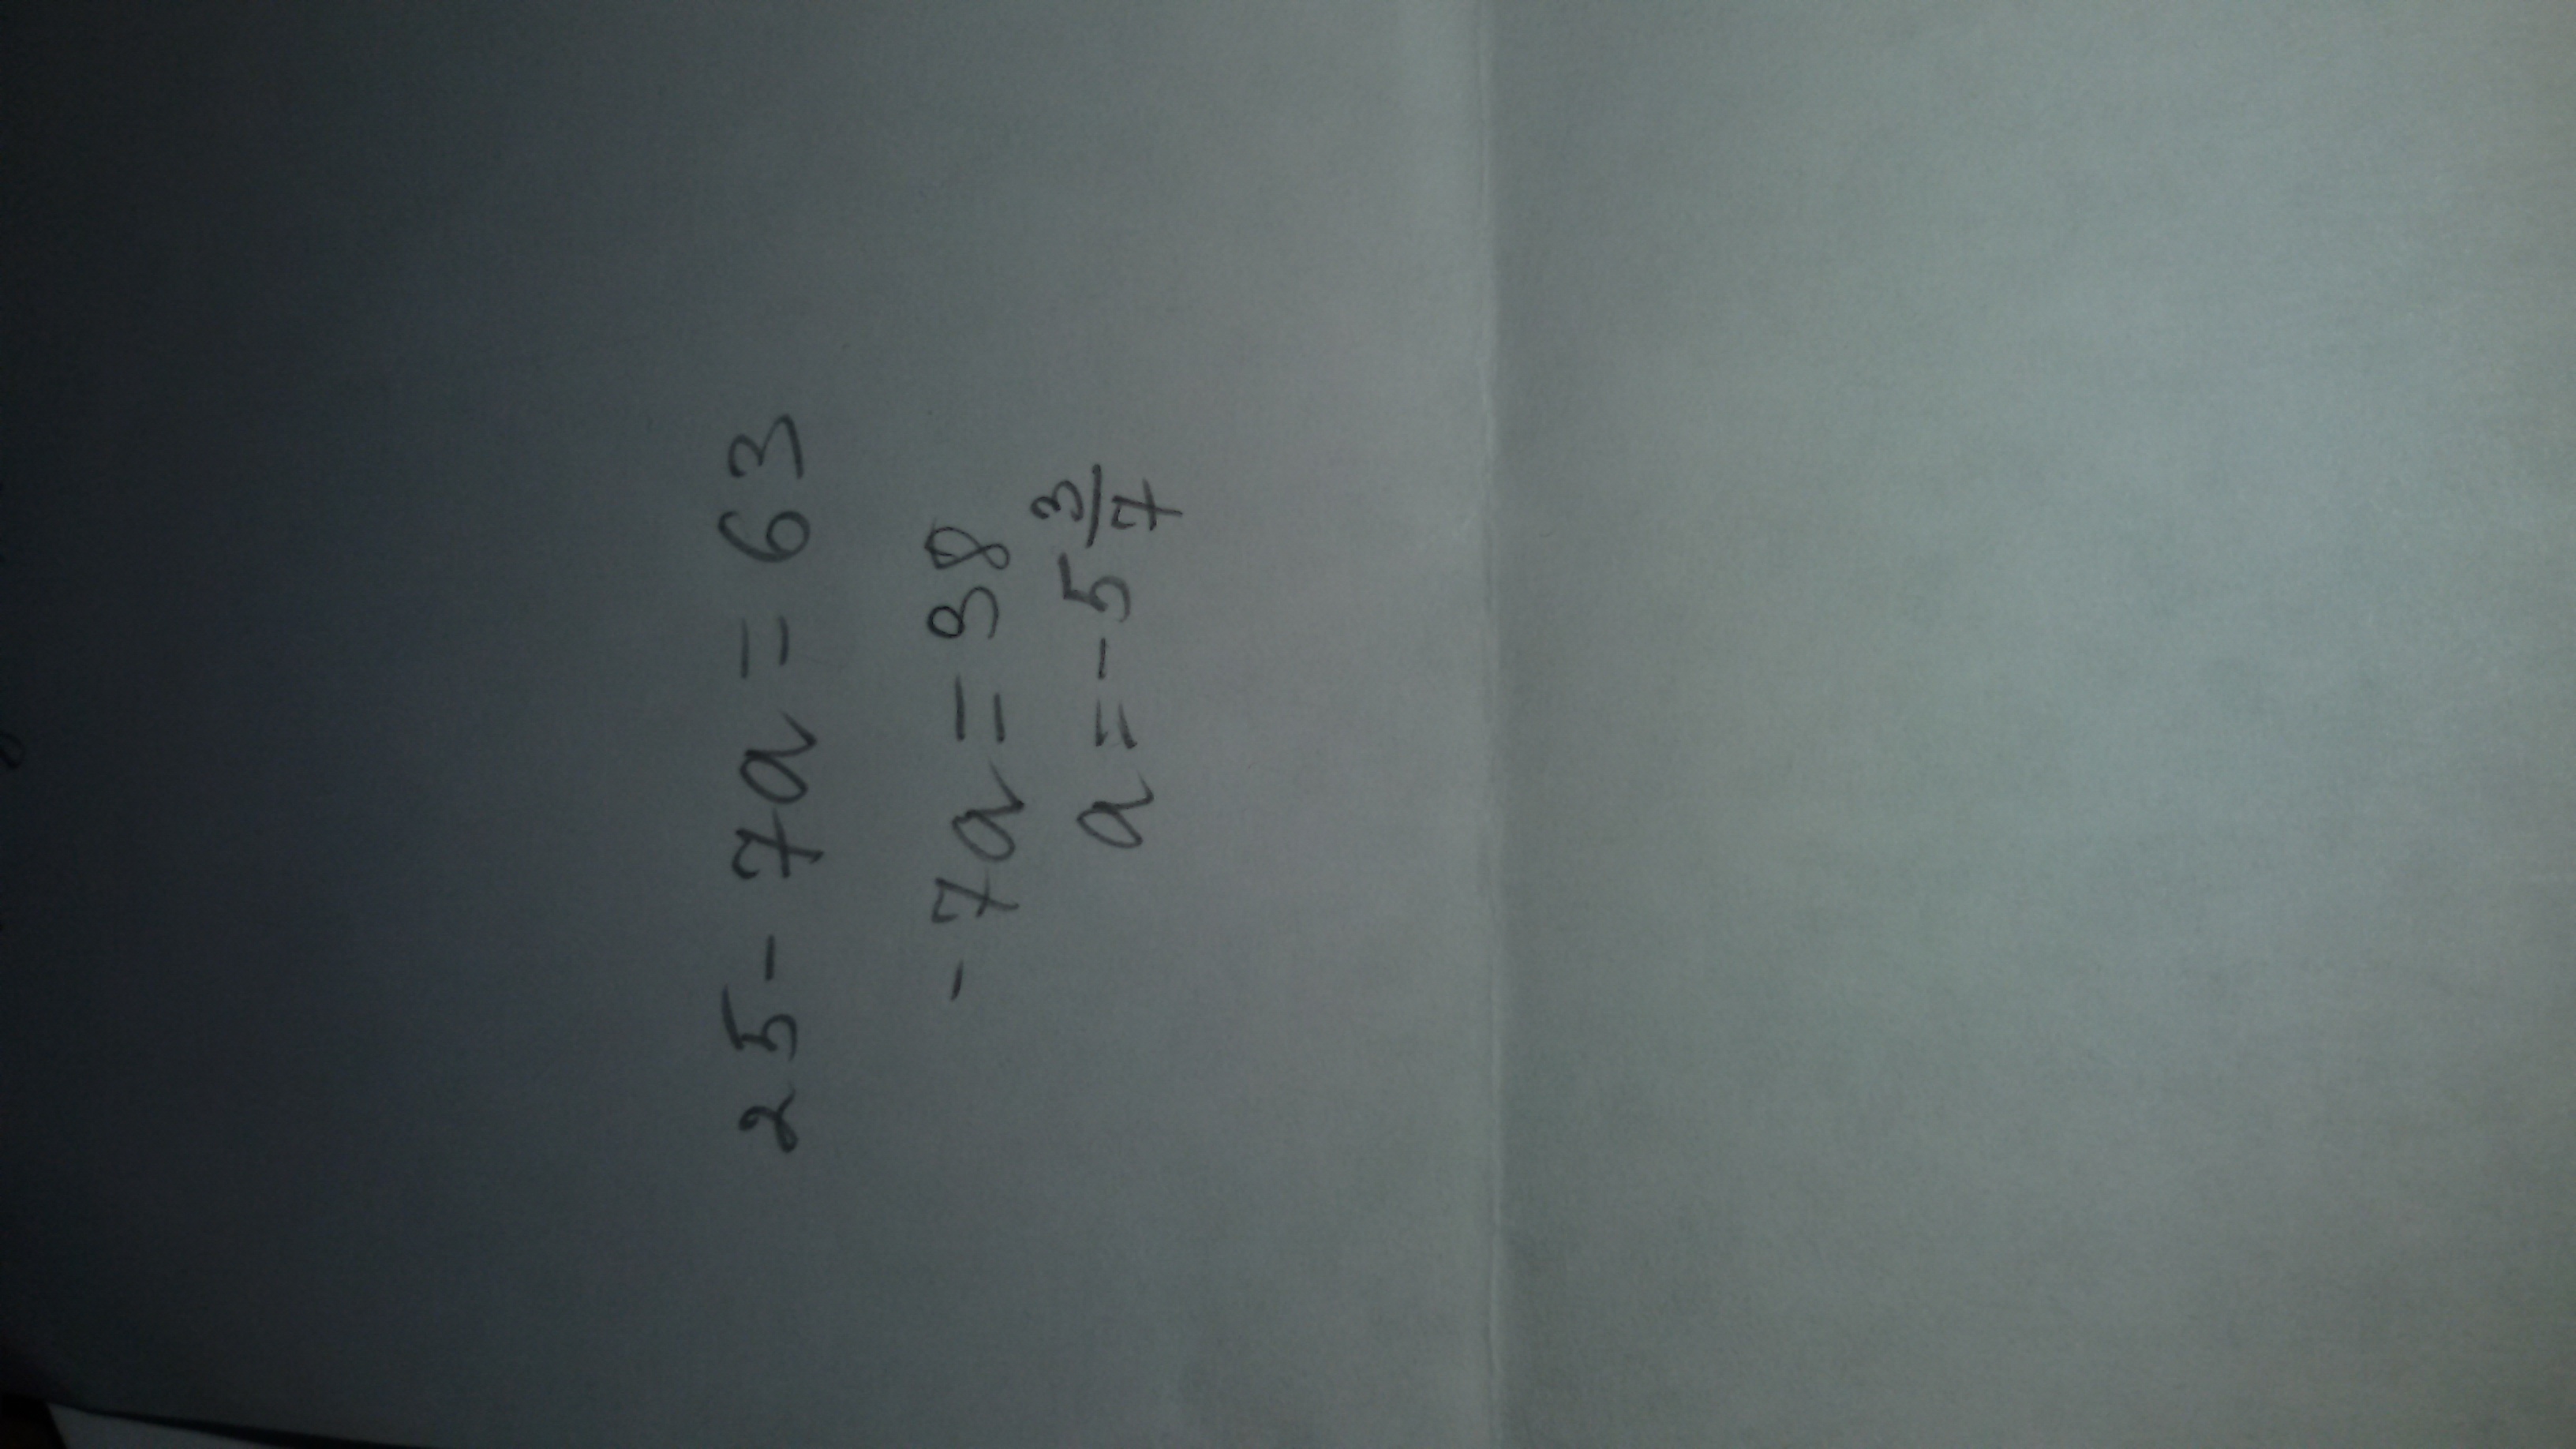 25 - 7a = 63
-7a = 38
a = -5 3/7